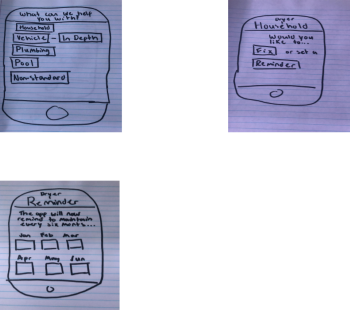 What can we help
you with?
Household
Vehicle - In Depth
Plumbing
Pool
Nonstandard
Dryer
Household
Would you
like to...
Fix or set a
Reminder
Dryer
Reminder
The app will now
remind to maintain
every six months...
Jan Feb Mar
Apr May Jun